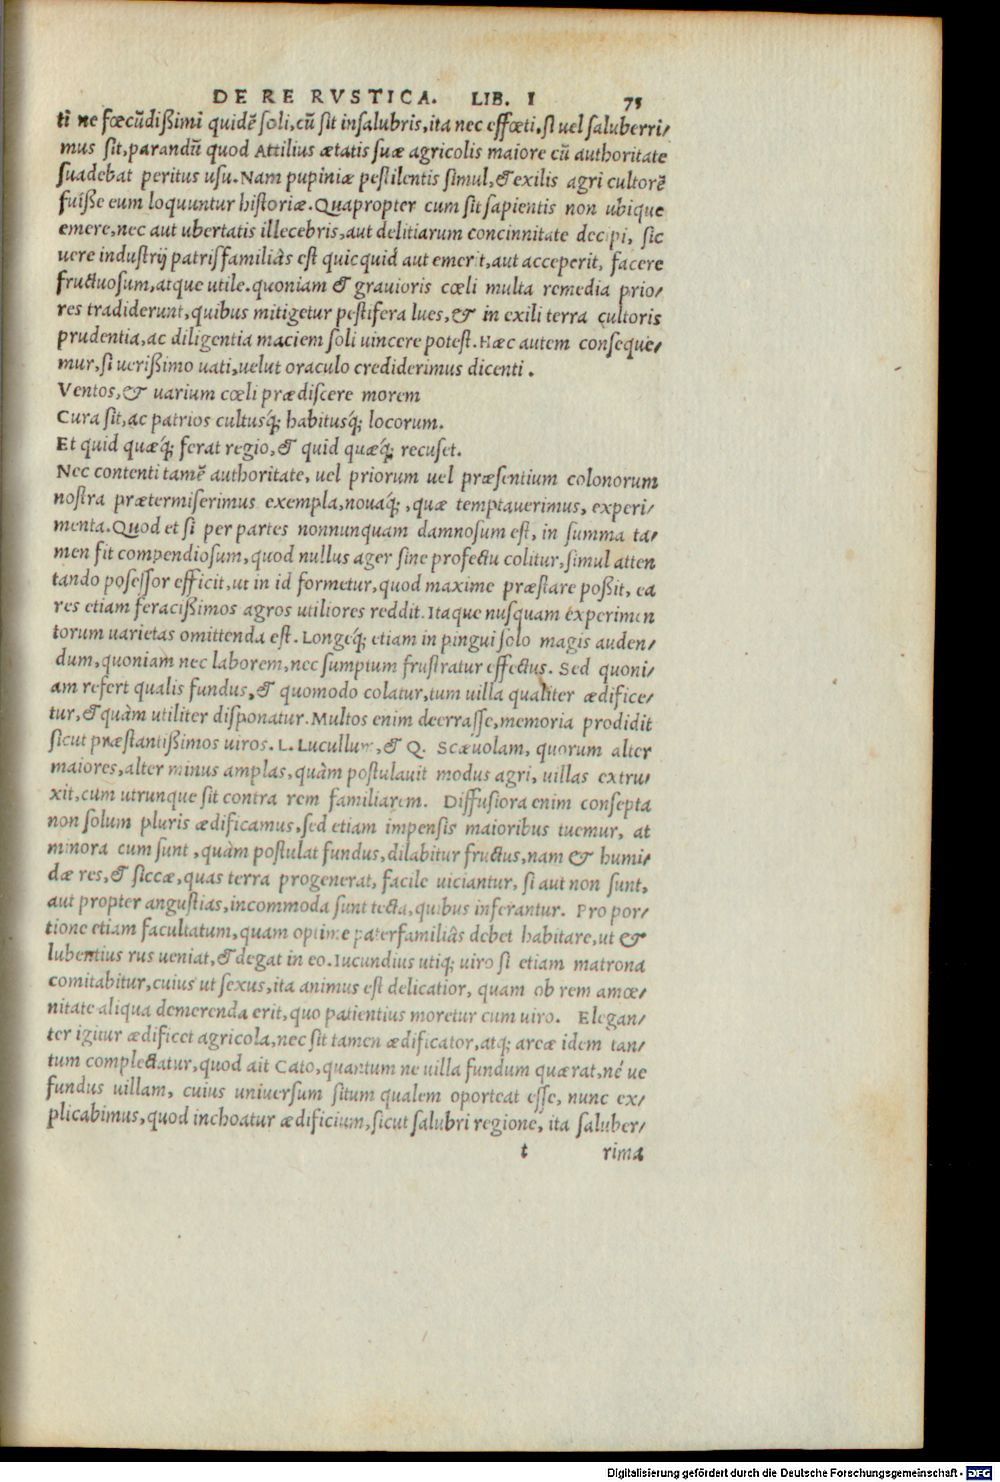 DE RE RVSTICA. LIB. I 75
ti ne fœcũdißimi quidẽ soli, cũ sit insalubris, ita nec effœti, si uel saluberri/
mus sit, parandũ quod Attilius ætatis suæ agricolis maiore cũ authoritate
suadebat peritus usu. Nam pupiniæ pestilentis simul, & exilis agri cultorẽ
fuiße eum loquuntur historiæ. Quapropter cum sit sapientis non ubique
emere, nec aut ubertatis illecebris, aut delitiarum concinnitate decipi, sic
uere industrij patrisfamiliâs est quicquid aut emerit, aut acceperit, facere
fructuosum, atque utile. quoniam & grauioris cœli multa remedia prio/
res tradiderunt, quibus mitigetur pestifera lues, & in exili terra cultoris
prudentia, ac diligentia maciem soli uincere potest. Hæc autem conseque/
mur, si uerißimo uati, uelut oraculo crediderimus dicenti.
Ventos, & uarium cœli prædiscere morem
Cura sit, ac patrios cultusq́; habitusq́; locorum.
Et quid quæq́; ferat regio, & quid quæq́; recuset.
Nec contenti tamẽ authoritate, uel priorum uel præsentium colonorum
nostra prætermiserimus exempla, nouaq́;, quæ temptauerimus, experi/
menta. Quod et si per partes nonnunquam damnosum est, in summa ta/
men fit compendiosum, quod nullus ager sine profectu colitur, simul atten
tando posessor efficit, ut in id formetur, quod maxime præstare poßit, ea
res etiam feracißimos agros utiliores reddit. Itaque nusquam experimen
torum uarietas omittenda est. Longeq́; etiam in pingui solo magis auden/
dum, quoniam nec laborem, nec sumptum frustratur effectus. Sed quoni/
am refert qualis fundus, & quomodo colatur, tum uilla qualiter ædifice/
tur, & quàm utiliter disponatur. Multos enim deerrasse, memoria prodidit
sicut præstantißimos uiros. L. Lucullum, & Q. Scæuolam, quorum alter
maiores, alter minus amplas, quàm postulauit modus agri, uillas extru/
xit, cum utrunque sit contra rem familiarem. Diffusiora enim consepta
non solum pluris ædificamus, sed etiam impensis maioribus tuemur, at
minora cum sunt, quàm postulat fundus, dilabitur fructus, nam & humi/
dæ res, & siccæ, quas terra progenerat, facile uiciantur, si aut non sunt,
aut propter angustias, incommoda sunt tecta, quibus inferantur. Pro por/
tione etiam facultatum, quam optime paterfamiliâs debet habitare, ut &
lubentius rus ueniat, & degat in eo. Iucundius utiq; uiro si etiam matrona
comitabitur, cuius ut sexus, ita animus est delicatior, quam ob rem amœ/
nitate aliqua demerenda erit, quo patientius moretur cum uiro. Elegan/
ter igitur ædificet agricola, nec sit tamen ædificator, atq; areæ idem tan/
tum complectatur, quod ait Cato, quantum ne uilla fundum quærat, né ue
fundus uillam, cuius uniuersum situm qualem oporteat esse, nunc ex/
plicabimus, quod inchoatur ædificium, sicut salubri regione, ita saluber/
t rima
Digitalisierung gefördert durch die Deutsche Forschungsgemeinschaft - DFG